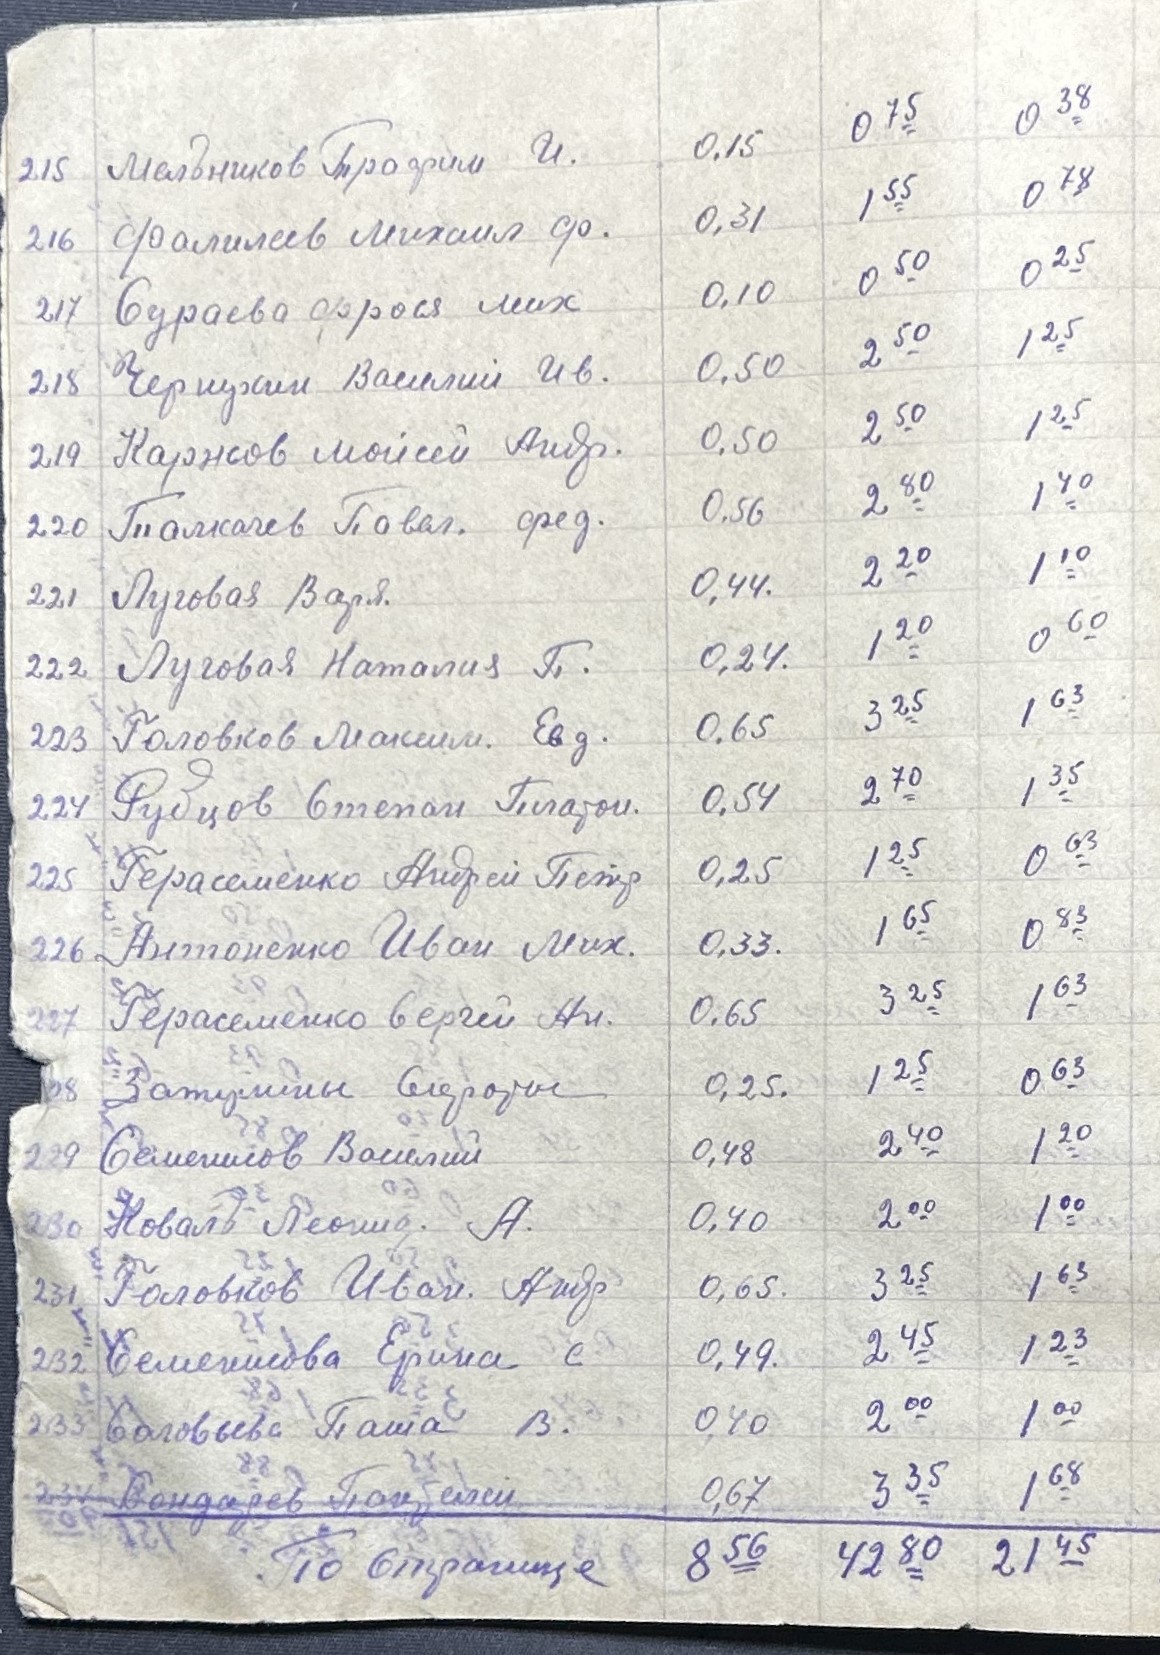 215 Мельников Трофим И. 0,15 0 75 0 38
216 Фалилеев Михаил Ф. 0,31 1 55 0 78
217 Сураева Фрося Мих 0,10 0 50 0 25
218 Чернухин Василий Ив. 0,50 2 50 1 25
219 Каржов Мойсей Андр. 0,50 2 50 1 25
220 Талкачев Павел. Фед. 0,56 2 80 1 40
221 Луговая Варя. 0,44. 2 20 1 10
222 Луговая Наталия П. 0,24. 1 20 0 60
223 Головков Максим. Евд. 0,65 3 25 1 63
224 Рубцов Степан Платон. 0,54 2 70 1 35
225 Герасеменко Андрей Петр 0,25 1 25 0 63
226 Антоненко Иван Мих. 0,33. 1 65 0 83
227 Герасеменко Сергей Ан. 0,65 3 25 1 63
28 Сироты 0,25. 1 25 0 63
229 Семенисов Василий 0,48 2 40 1 20
230 Коваль Леонид. А. 0,40 2 00 1 00
231 Головков Иван. Андр 0,65. 3 25 1 63
232 Семенисова Ерина С 0,49. 2 45 1 23
233 Саловьева Паша В. 0,40 2 00 1 00
234 Бондарев Пантелей 0,67 3 35 1 68
По странице 8 56 42 80 21 45